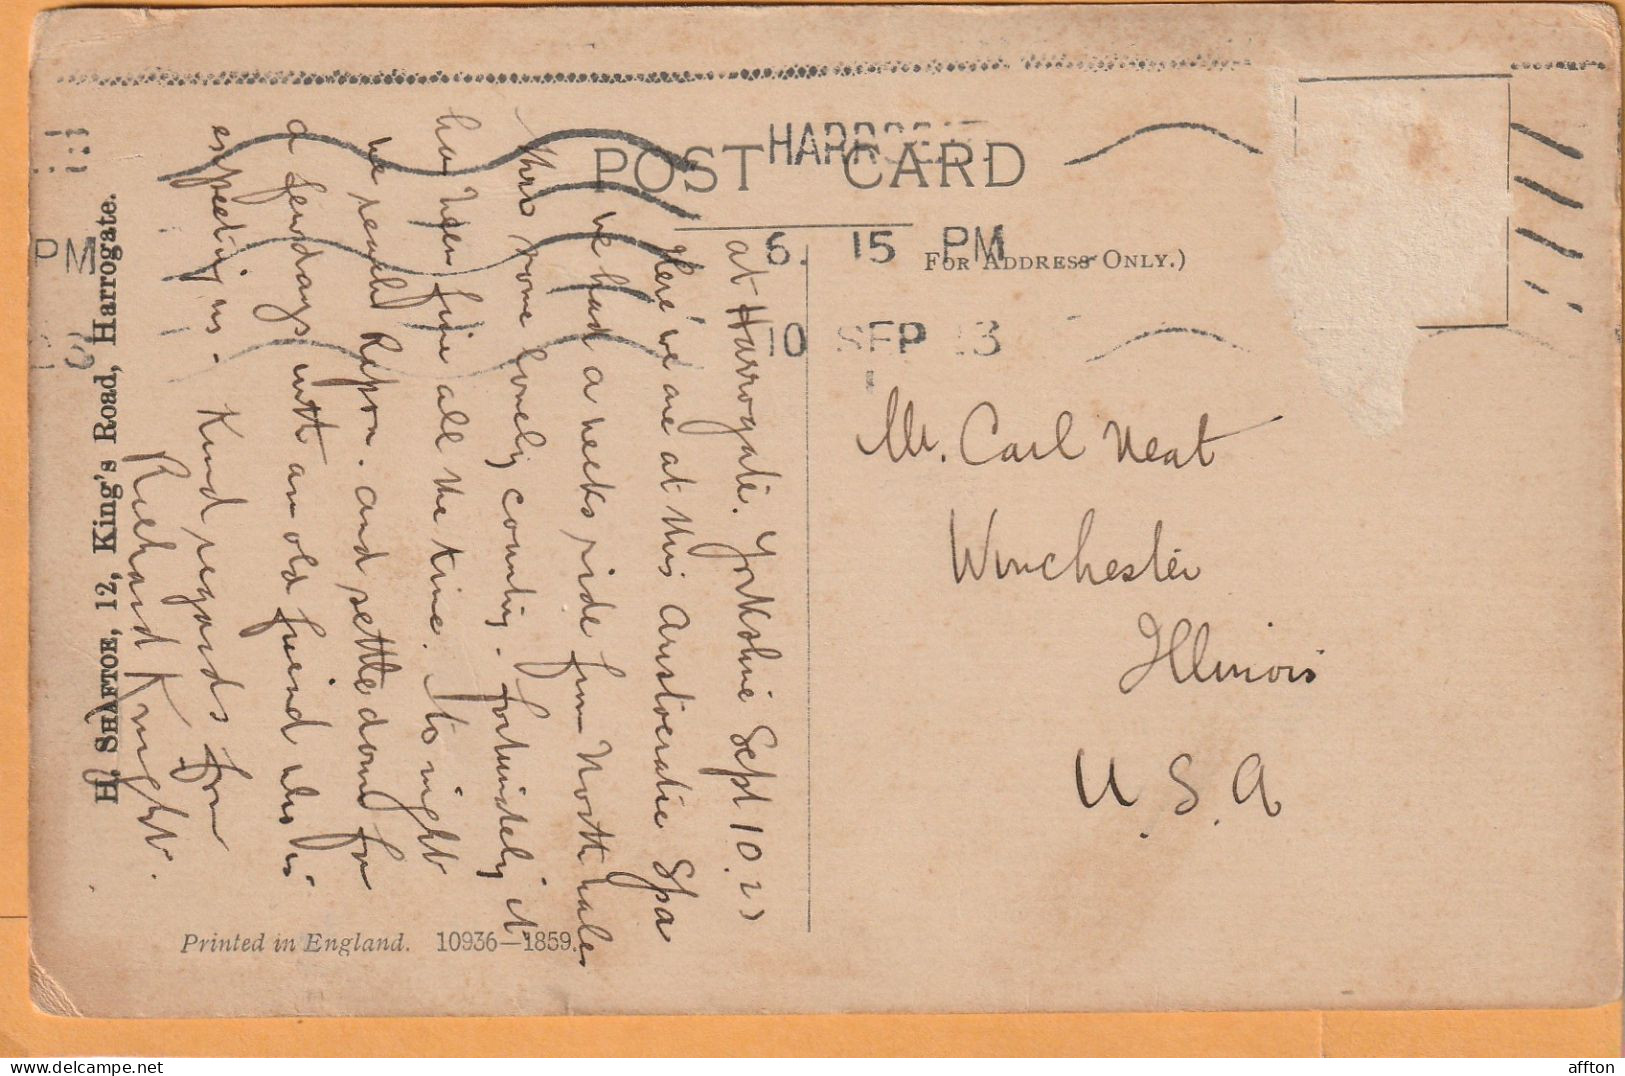 HARROGATE
POST CARD
6. 15 PM
(FOR ADDRESS ONLY.)
10 SEP 23
PM
at Harrogate. Yorkshire Sept 10. 23
Here we are at this Aristocratic Spa
we had a weeks ride from North Wales
thro some lovely country. fortunately it
has been fine all the time. To night
we reach Ripon. and settle down for
a few days with an old friend who is
expecting us. Kind regards from
Richard Knight.
H. SHAFTOE, 12, King's Road, Harrogate.
Mr. Carl Neat
Winchester
Illinois
U.S.A
Printed in England. 10936—1859.
affton